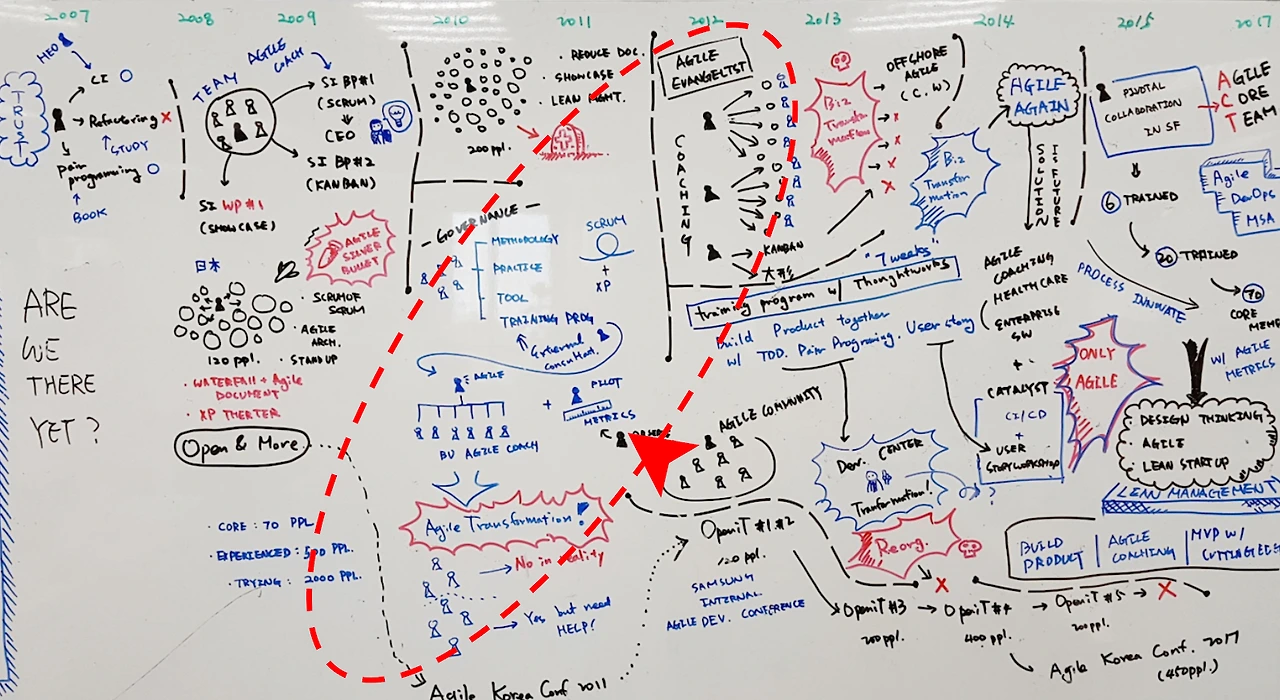 2007
2008
2009
2010
2011
2012
2013
2014
2015
2017
HEO
CI
TRUST
Refactoring X
STUDY
pair
programing
BOOK
TEAM
AGILE
COACH
SI BP#1
(SCRUM)
CEO
SI BP#2
(KANBAN)
SI WP#1
(SHOWCASE)
AGILE
SILVER
BULLET
日本
120 ppl.
· SCRUM OF
SCRUM
· AGILE
ARCH.
· STANDUP
· WATERFALL + Agile
DOCUMENT
· XP THEATER
Open & More
ARE
WE
THERE
YET?
· CORE : 70 PPL
· EXPERIENCED : 500 PPL.
· TRYING : 2000 PPL.
200 ppl.
· REDUCE DOC.
· SHOWCASE
· LEAN MGMT.
GOVERNANCE
METHODOLOGY
PRACTICE
TOOL
TRAINING PROG
SCRUM
+
XP
External
consultant.
AGILE
BU AGILE COACH
+
PILOT
METRICS
Agile Transformation!
No in reality
Yes but need
HELP!
Agile Korea Conf 2011
AGILE
EVANGELIST
COACHING
KANBAN
大形
Biz
Transfor
mation
X
X
X
X
OFFSHORE
AGILE
(C. W)
Biz
Transfor
mation
"7 weeks"
training program w/ Thoughtworks
Build Product together
w/ TDD. Pair Programing. User story
AGILE COMMUNITY
OpeniT #1 #2
120 ppl.
SAMSUNG
INTERNAL
AGILE DEV. CONFERENCE
Dev. CENTER
Tranformation!
?
Reorg.
X
OpeniT #3
200 ppl.
OpeniT #4
400 ppl.
OpeniT #5
200 ppl.
X
Agile Korea Conf. 2017
(450ppl.)
AGILE
AGAIN
SOLUTION
IS FUTURE
AGILE
COACHING
HEALTHCARE
ENTERPRISE
SW
+
CATALYST
CI/CD
+
USER
STORY WORKSHOP
PIVOTAL
COLLABORATION
IN SF
AGILE
CORE
TEAM
6 TRAINED
20 TRAINED
70
CORE
MEMB
Agile
DevOps
MSA
PROCESS INNOVATE
W/ AGILE
METRICS
ONLY
AGILE
DESIGN THINKING
AGILE
LEAN STARTUP
LEAN MANAGEMENT
BUILD
PRODUCT
AGILE
COACHING
MVP W/
CUTTING EDG